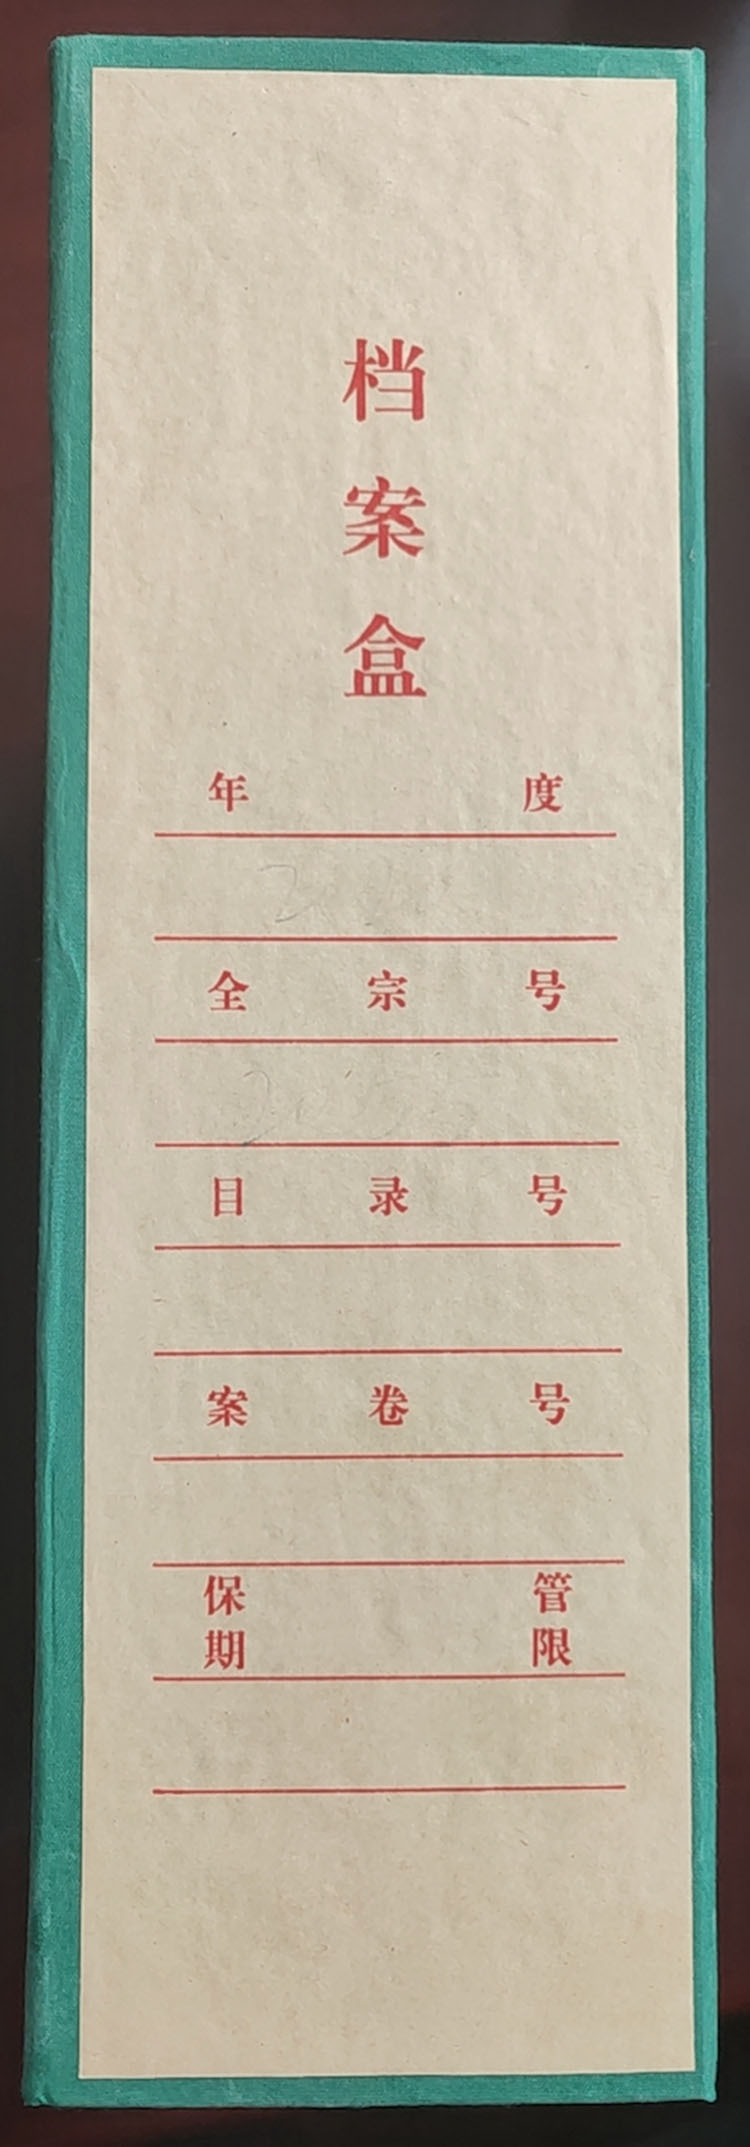 档
案
盒
年 度
全 宗 号
目 录 号
案 卷 号
保 管
期 限